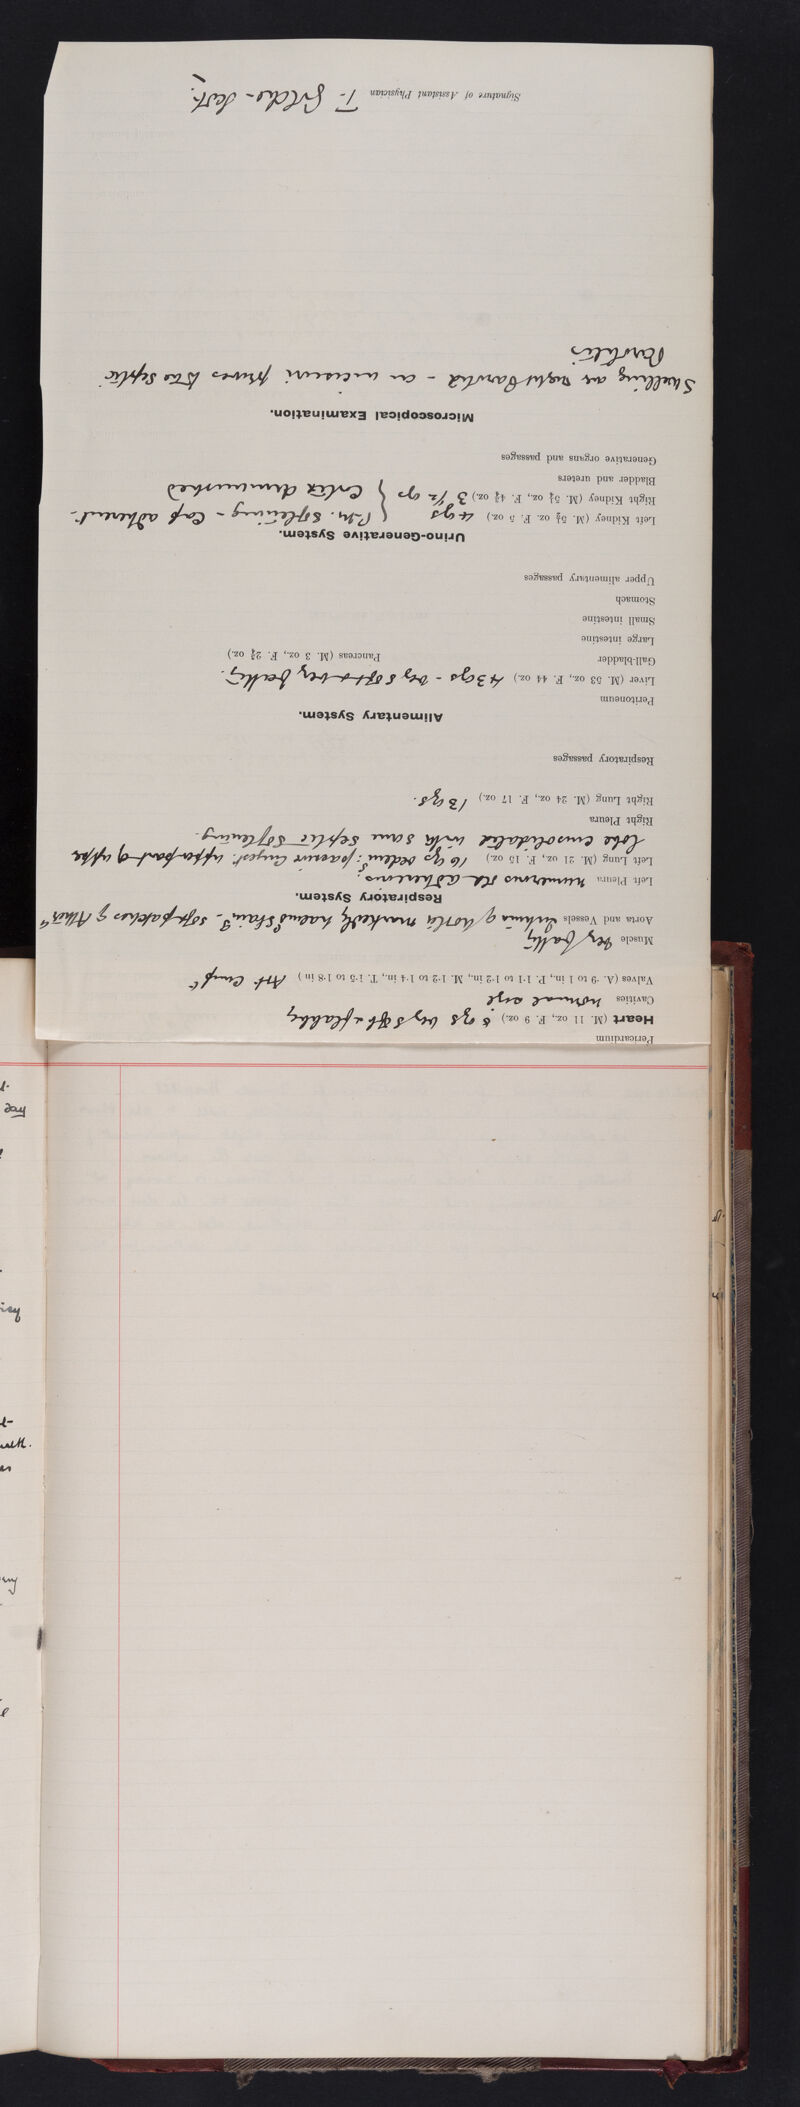 Pericardium
Heart (M. 11 oz., F. 9 oz.) 8 ozs very soft & flabby
Cavities normal size
Valves (A. ·9 to 1 in., P. 1·1 to 1·2 in., M. 1·2 to 1·4 in., T. 1·5 to 1·8 in.) Art. Compt
Muscle very fatty
Aorta and Vessels Intima of Aorta markedly haemo stained - soft patches of
Respiratory System.
Left Pleura numerous old adhesions;
Left Lung (M. 21 oz., F. 15 oz.) 16 ozs oedems; passive congest. upper part of upper
lobe consolidated with some septic softening.
Right Pleura
Right Lung (M. 24 oz., F. 17 oz.) 13 ozs.
Respiratory passages
Alimentary System.
Peritoneum
Liver (M. 53 oz., F. 44 oz.) 43 ozs - very soft & very fatty.
Gall-bladder Pancreas (M. 3 oz., F. 2¾ oz.)
Large intestine
Small intestine
Stomach
Upper alimentary passages
Urino-Generative System.
Left Kidney (M. 5½ oz. F. 5 oz.) 4 ozs { P.M. softening - Cap adherent -
Right Kidney (M. 5¼ oz., F. 4¾ oz.) 3 1/2 ozs { Cortex diminished
Bladder and ureters
Generative organs and passages
Microscopical Examination.
Swelling over right Parotid - on incision proves to be septic
Parotitis
Signature of Assistant Physician T.